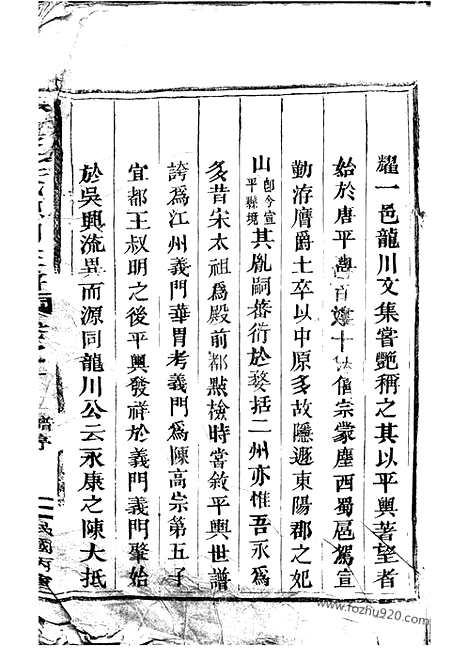 耀一邑龍川文集嘗艷稱之其以平輿著望者
始於唐平輿百僖宗蒙塵西蜀扈駕宣
勤洊膺爵土卒以中原多故隱遯東陽郡之妃
山即今宣平縣境其胤嗣蕃衍於婺括二州亦惟吾永為
多昔宋太祖為殿前都點檢時嘗敘平輿世譜
誇為江州義門華胃考義門為陳高宗第五子
宜都王叔明之後平輿發祥於義門義門肇始
於吳興流異而源同龍川公云永康之陳大抵
譜序
民國丙
www.fozhu920.com